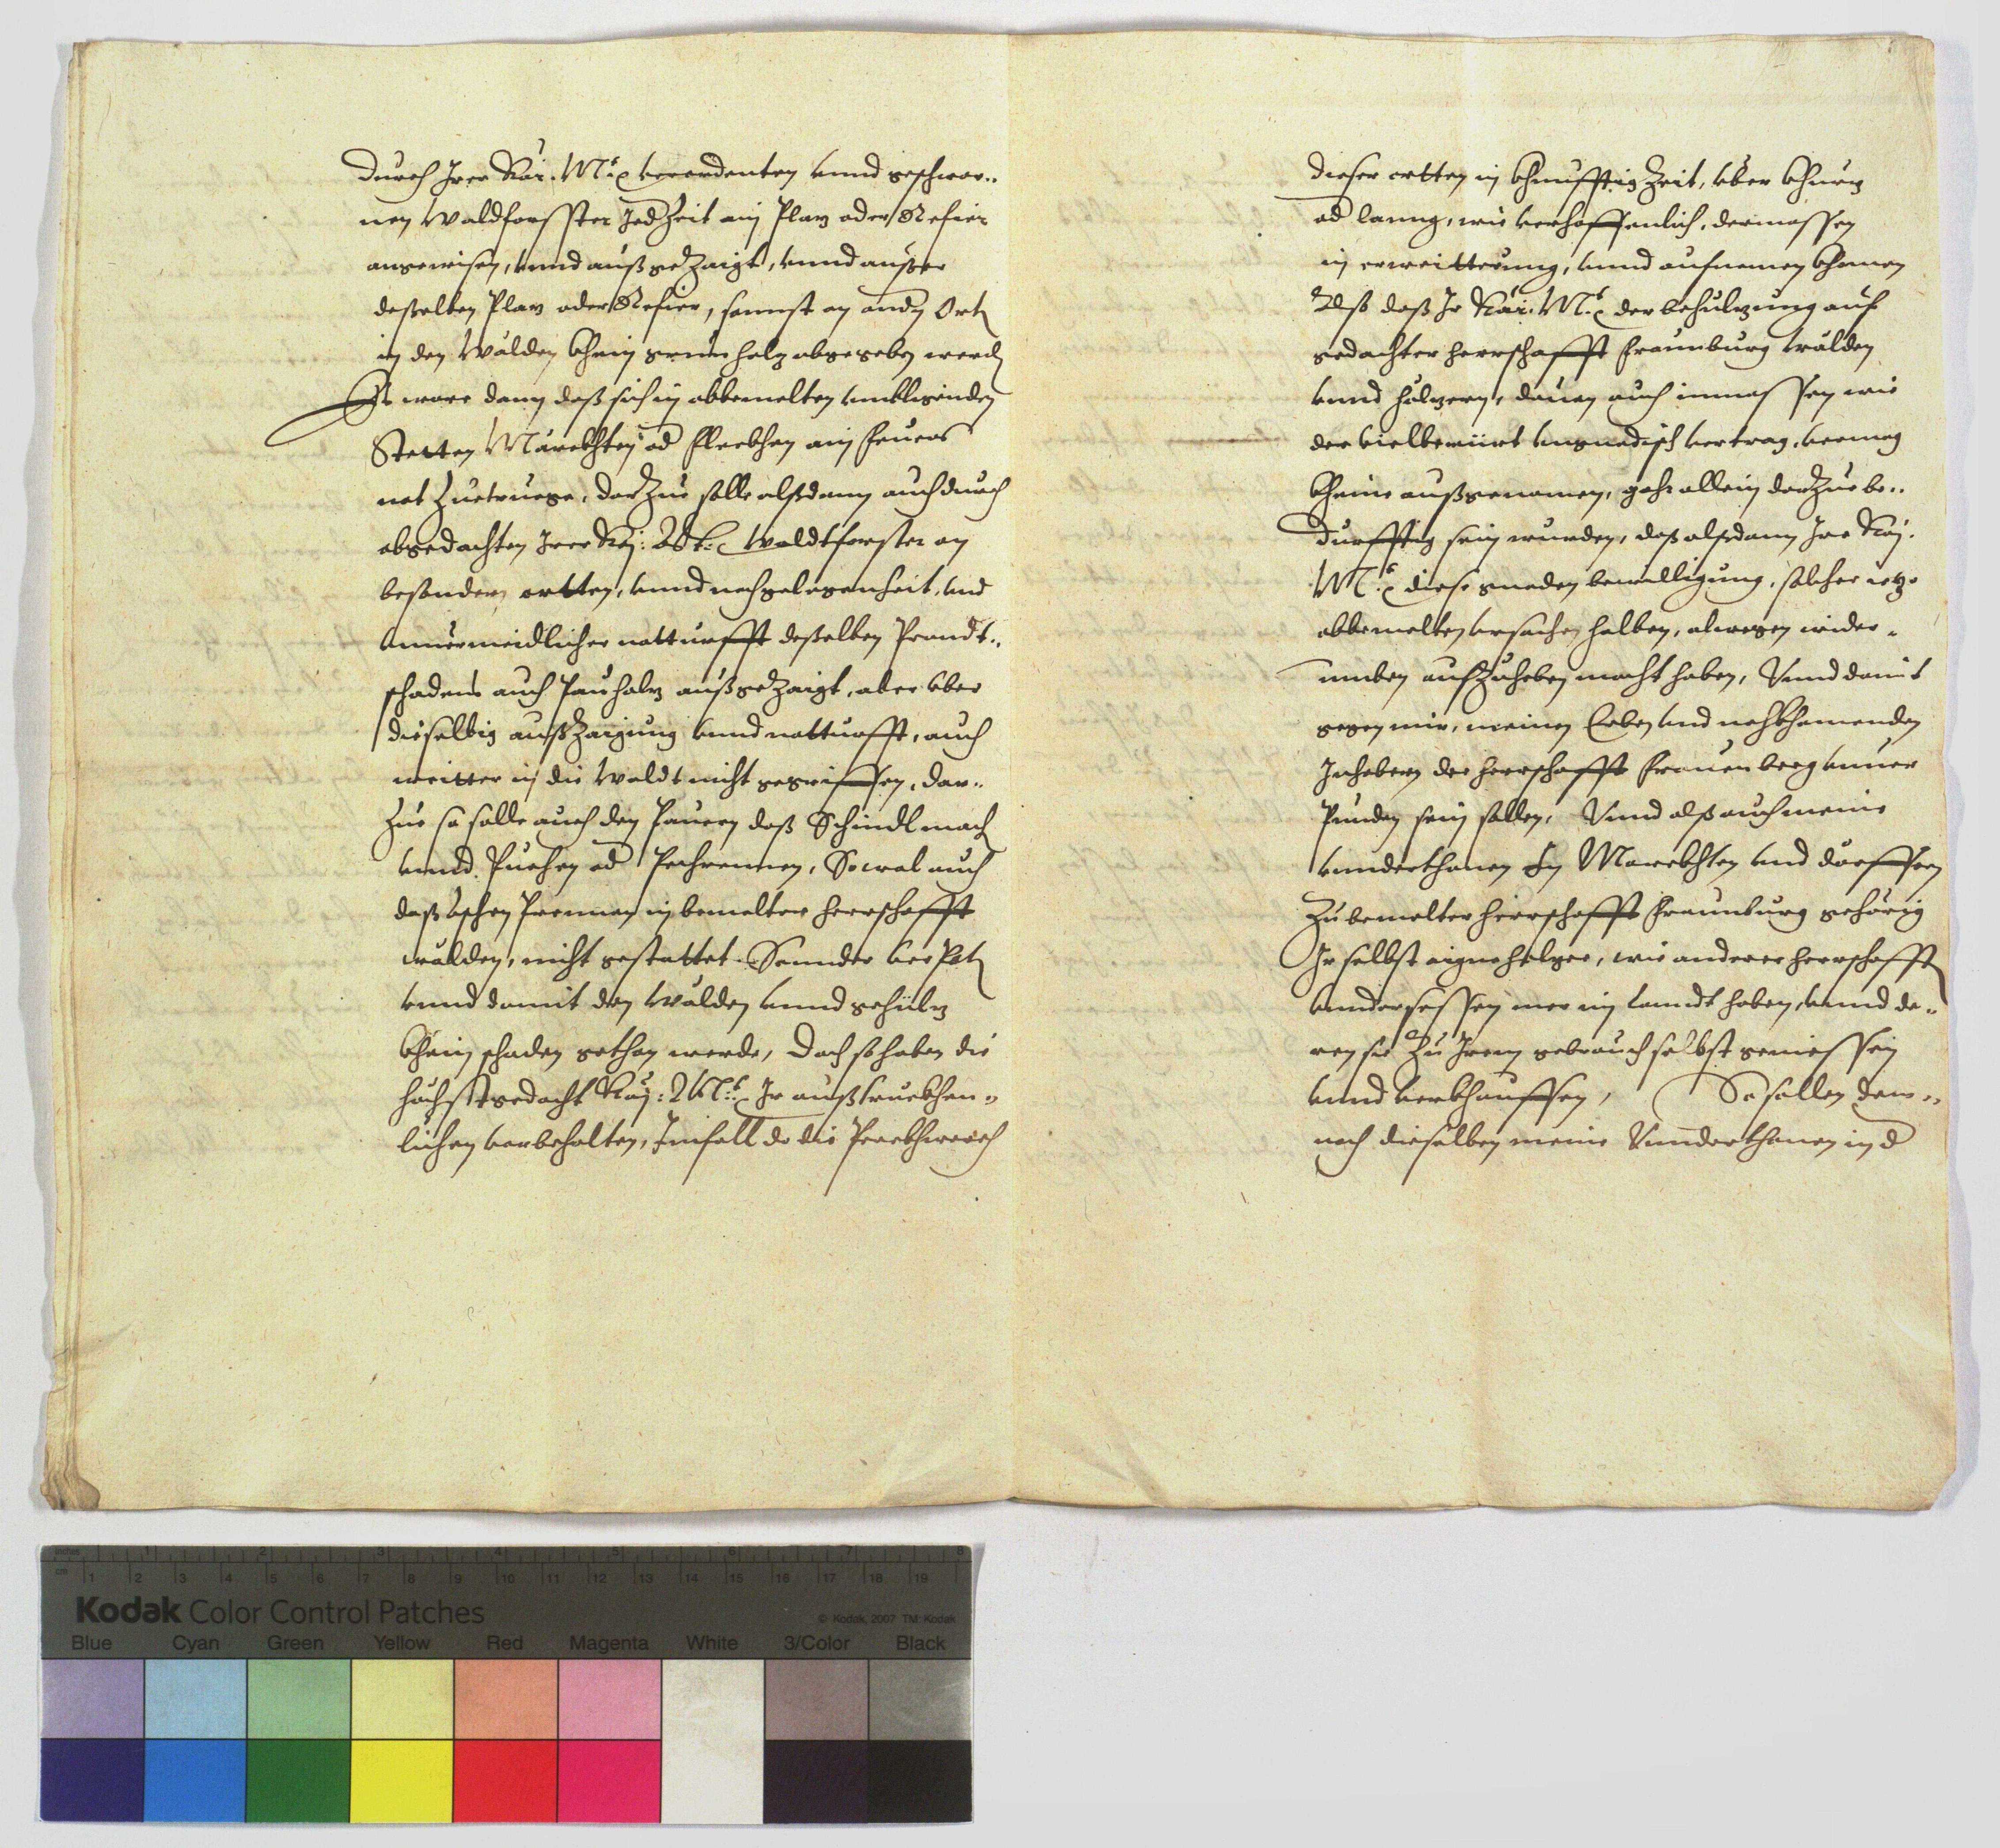 durch Irer Kai: Mt: verordenten vnnd geschwor-
nen Waldforsster Jed Zeit ain Plaz oder Refier
angewisen, vnnd außgeZaigt, vnnd ausser
desselben Plaz oder Refier, sonnst an andn Ort
in den Wälden Khain grien holz abgegeben werd
Es ware dann daß sich in obbemelten vmbligenden
Stetten Märckhten od Fleckhen ain Feuers
not Zuetruege, darZue solle alßdann auch durch
obgedachten Irer Kai: Mt: Waldtforster an
besondern ortten, vnnd nach gelegenheit, vnd
vnuermeidlicher notturfft desselben Prandt-
schadens auch Pauholz außgeZaigt, aber vber
dieselbig außZaigung vnnd notturfft, auch
weitter in die Waldt nicht gegriffen, dar-
Zue so solle auch den Pauern daß Schindl mach
vnnd Puechen od Pechrennen, Sowol auch
daß Aschen Prennen in bemelter Herrschafft
wälden, nicht gestattet. Sonnder verPot
vnnd damit den Wälden vnnd gehülz
Khain schaden gethan werde, Doch so haben die
höchstgedacht Kay: Mt: Ir außtruckhen-
lichen vorbehalten, Imfall do die Perckhwerch
dieser ortten in Khunfftig Zeit, vber Khurz
od lanng, wie verhoffenlich, dermassen
in erweitterung, vnnd aufnemen Khomen
Also daß Ir Kai: Mt: der behulzung auf
gedachter herrschafft Fraunburg wälden
vnnd hülzern, dauon auch inmassen wie
der vielberüert vngnadisch vertrag, vermag
Khaine außgenomen, gahr allein darZue be-
durfftig sein wurden, daß alßdann Ire Kay:
Mt: diese gnaden bewilligung, solcher iez-
obbemelten vrsachen halben, alwegen wider-
umben aufZuheben macht haben, Vnnd damit
gegen mir, meinen Erben vnd nachkhomenden
Inhabern der herrschafft Frauenberg vnuer
Punden sein sollen, Vnnd alß auch meine
vnnderthanen In Marckhten vnd dörffern
Zu bemelter herrschafft Fraunburg gehörig
Ir selbst aigne hölzer, wie anderer herrschafft
vnndersessen mer im Lanndt haben, vnnd de-
ren sie Zu Irem gebrauch selbst geniessen
vnnd verkhauffen, So sollen dem-
nach dieselben meine Vnnderthanen in d